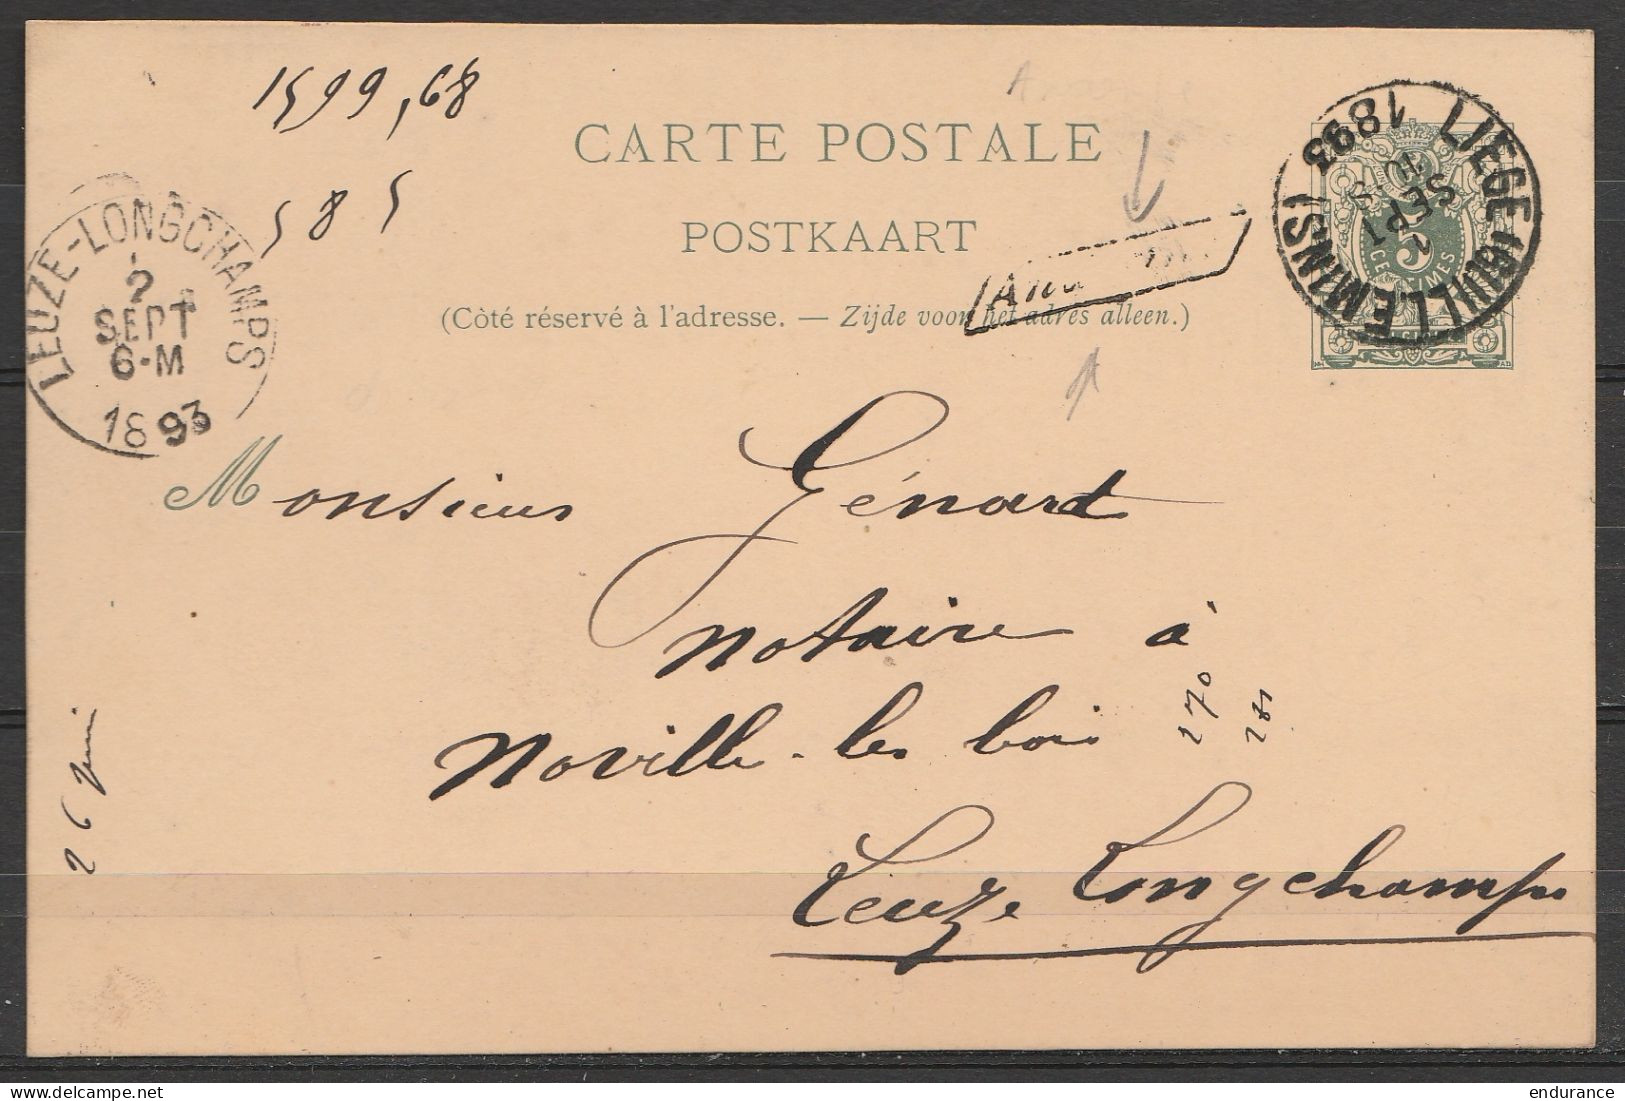 1599,68
CARTE POSTALE
585
POSTKAART
(Côté réservé à l'adresse. — Zijde voor het adres alleen.)
LIEGE (GUILLEMINS)
1
SEPT
1893
5
CENTIMES
LEUZE-LONGCHAMPS
2
SEPT
6-M
1893
Monsieur Génart
notaire à
Noville-les bois
270
Leuze Longchamps
26 Juin
endurance